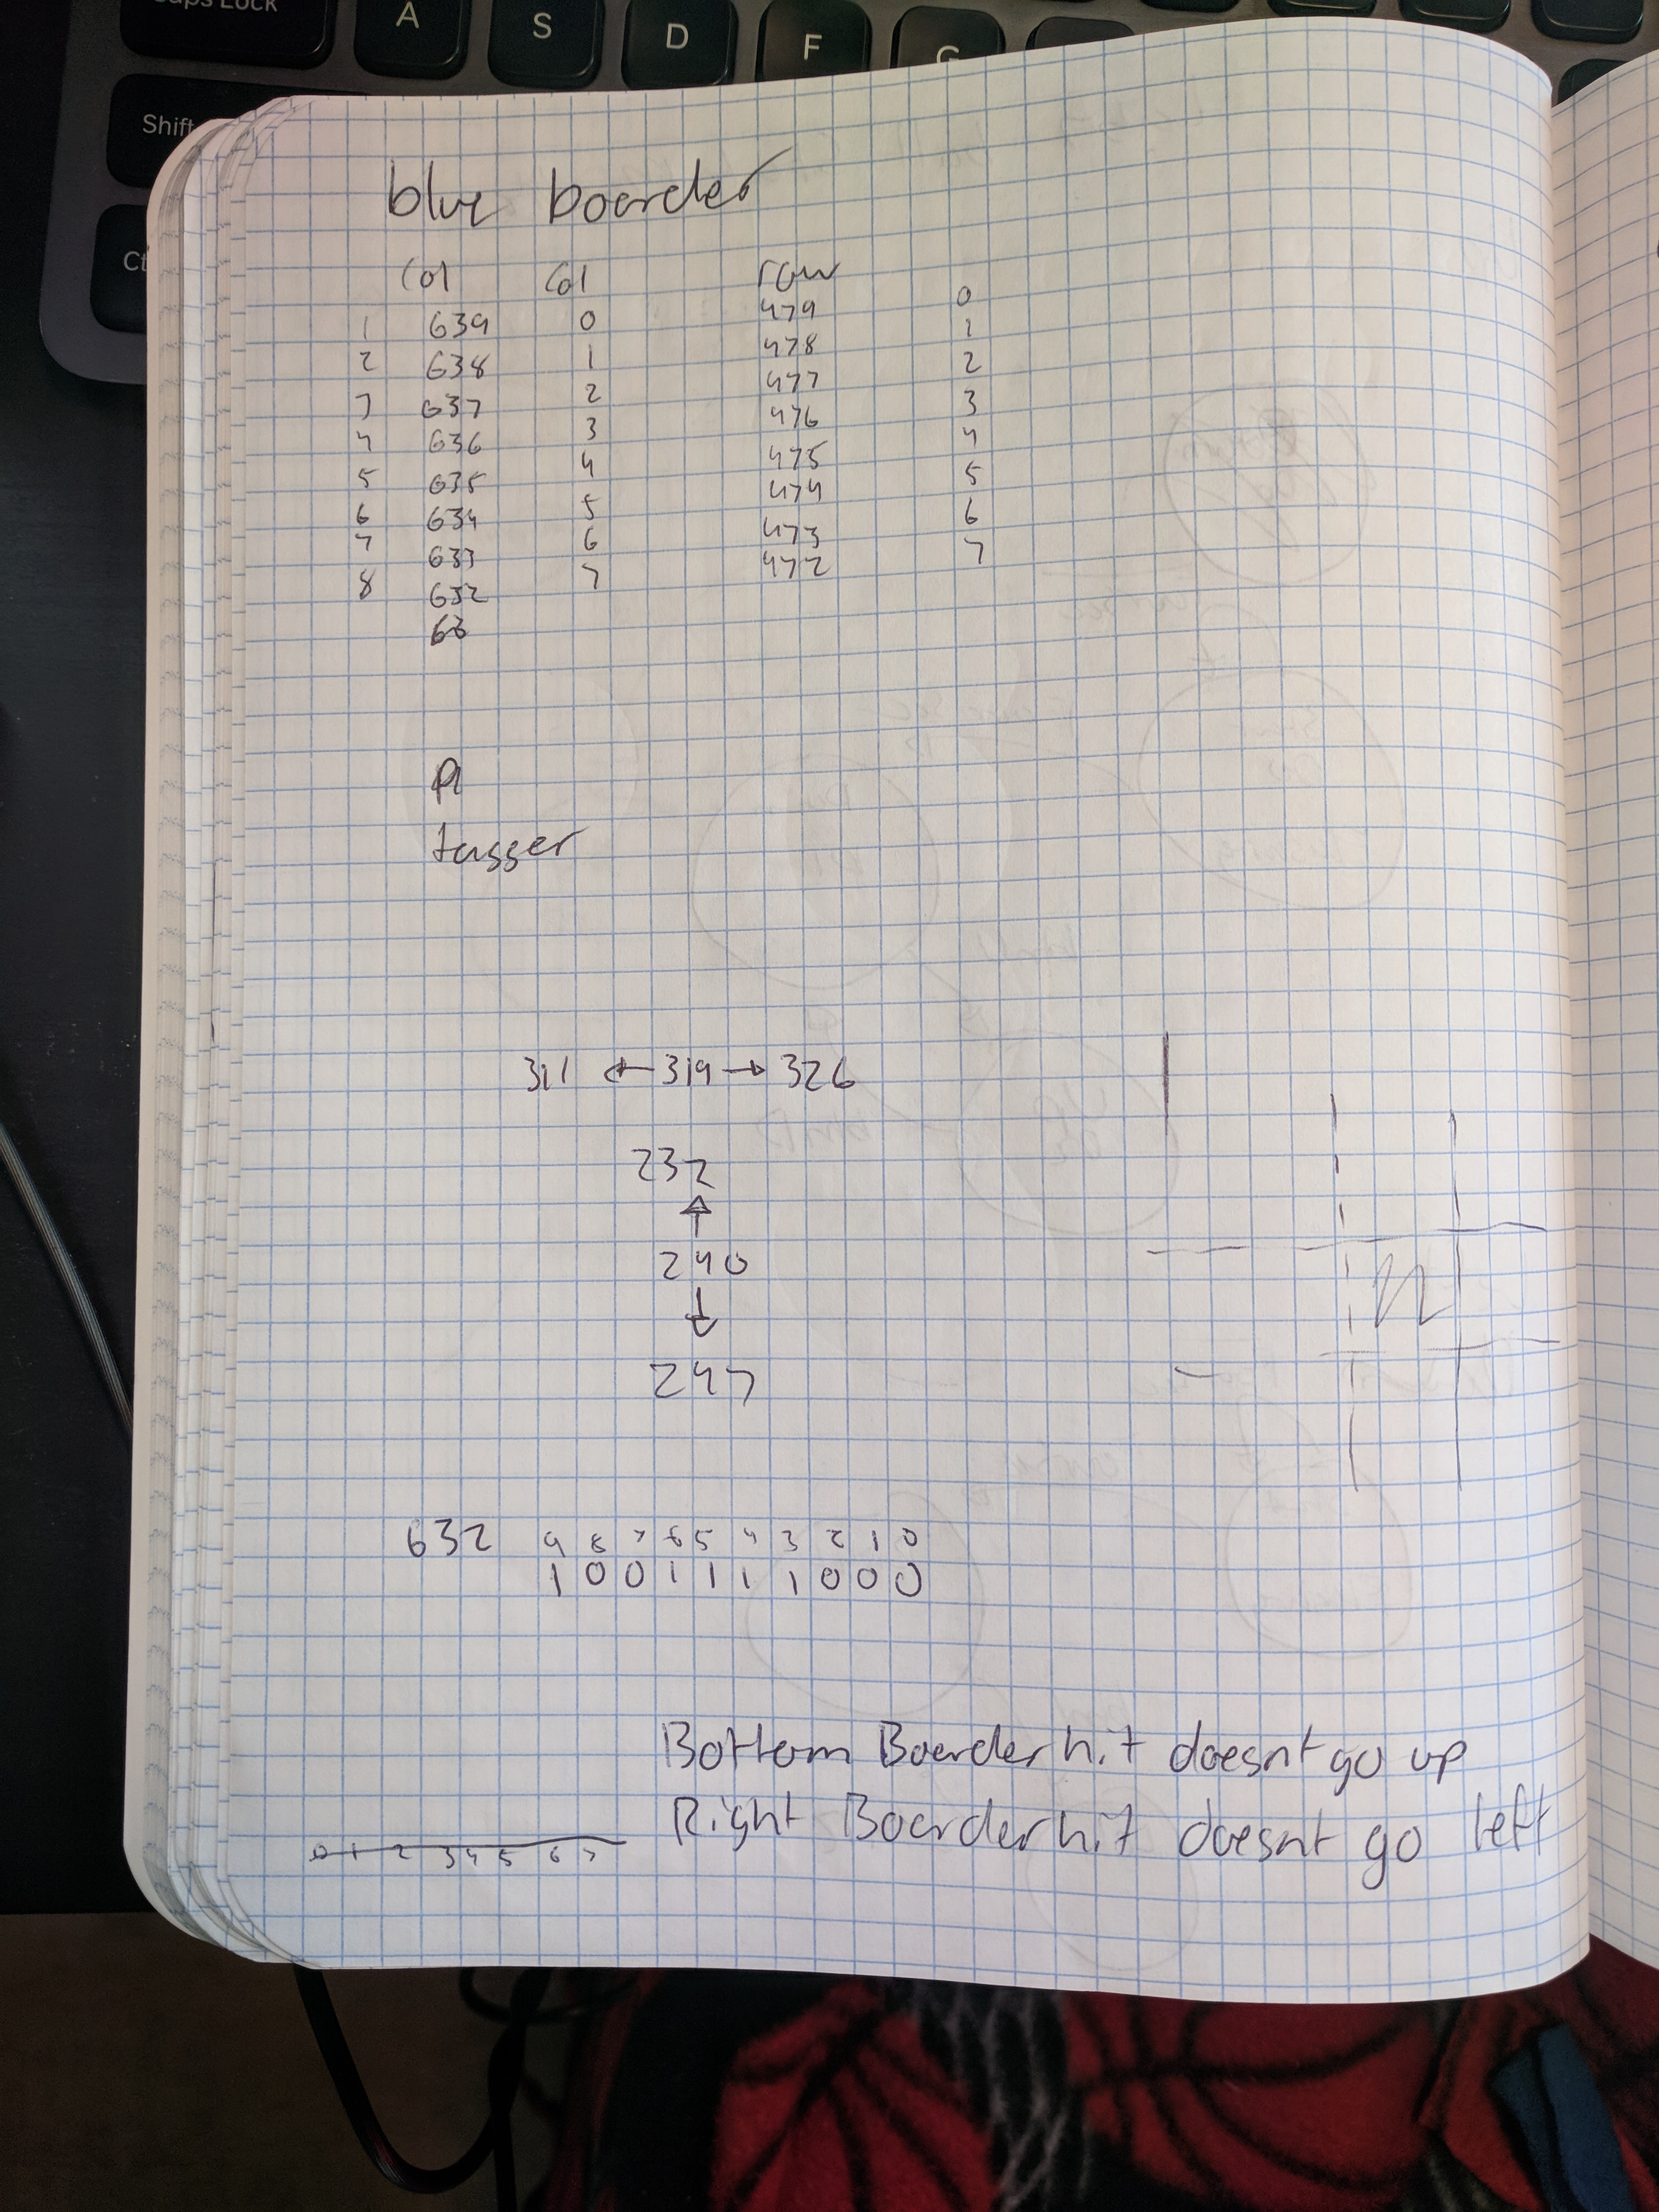 Caps Lock A S D F G
Shift
Ct
blue boarder
Col Col row
1 639 0 479 0
2 638 1 478 1
3 637 2 477 2
4 636 3 476 3
5 635 4 475 4
6 634 5 474 5
7 633 6 473 6
8 632 7 472 7
63
311 ← 319 → 326
232
↑
240
↓
247
632 9 8 7 6 5 4 3 2 1 0
1 0 0 1 1 1 1 0 0 0
Bottom Boarder hit doesnt go up
Right Boarder hit doesnt go left
0 1 2 3 4 5 6 7